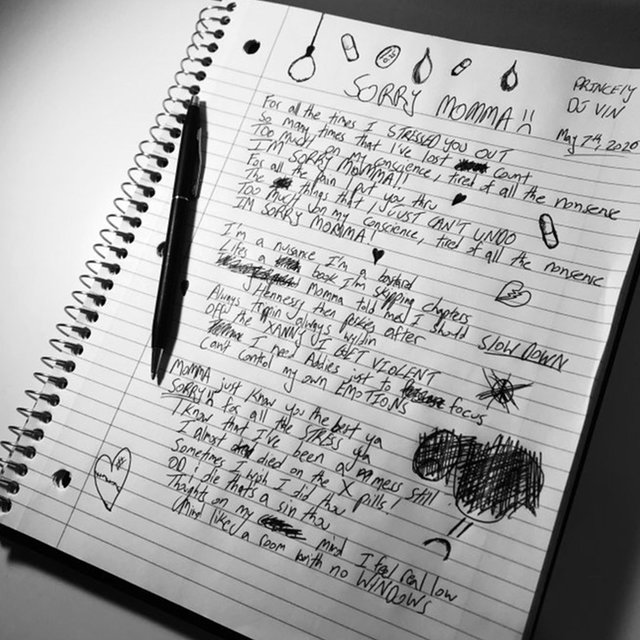 SORRY MOMMA!!
PRINCEIY
DJ VIN
May 7th, 2020
For all the times I STRESSED YOU OUT
So many times that I've lost count
TOO much on my conscience, tired of all the nonsense
I'M SORRY MOMMA!!
For all the pain I put you thru
The things that I JUST CAN'T UNDO
TOO much on my conscience, tired of all the nonsense
IM SORRY MOMMA!
I'm a nusance I'm a bastard
Lifes a book I'm skipping chapters
Momma told me I should SLOW DOWN
Hennessy then pukes after
Always Trippin always wyldin
Off the XANNYS I GET VIOLENT
I need Addies just to focus
Cant control my own EMOTIONS
MOMMA just know you the best ya
SORRY for all the STRESS ya
I know that I've been a mess still
I almost died on the X pills!
Sometimes I wish I did tho
OD i die thats a sin tho
Thoughts on my mind I feel real low
Mind likes a room with no WINDOWS